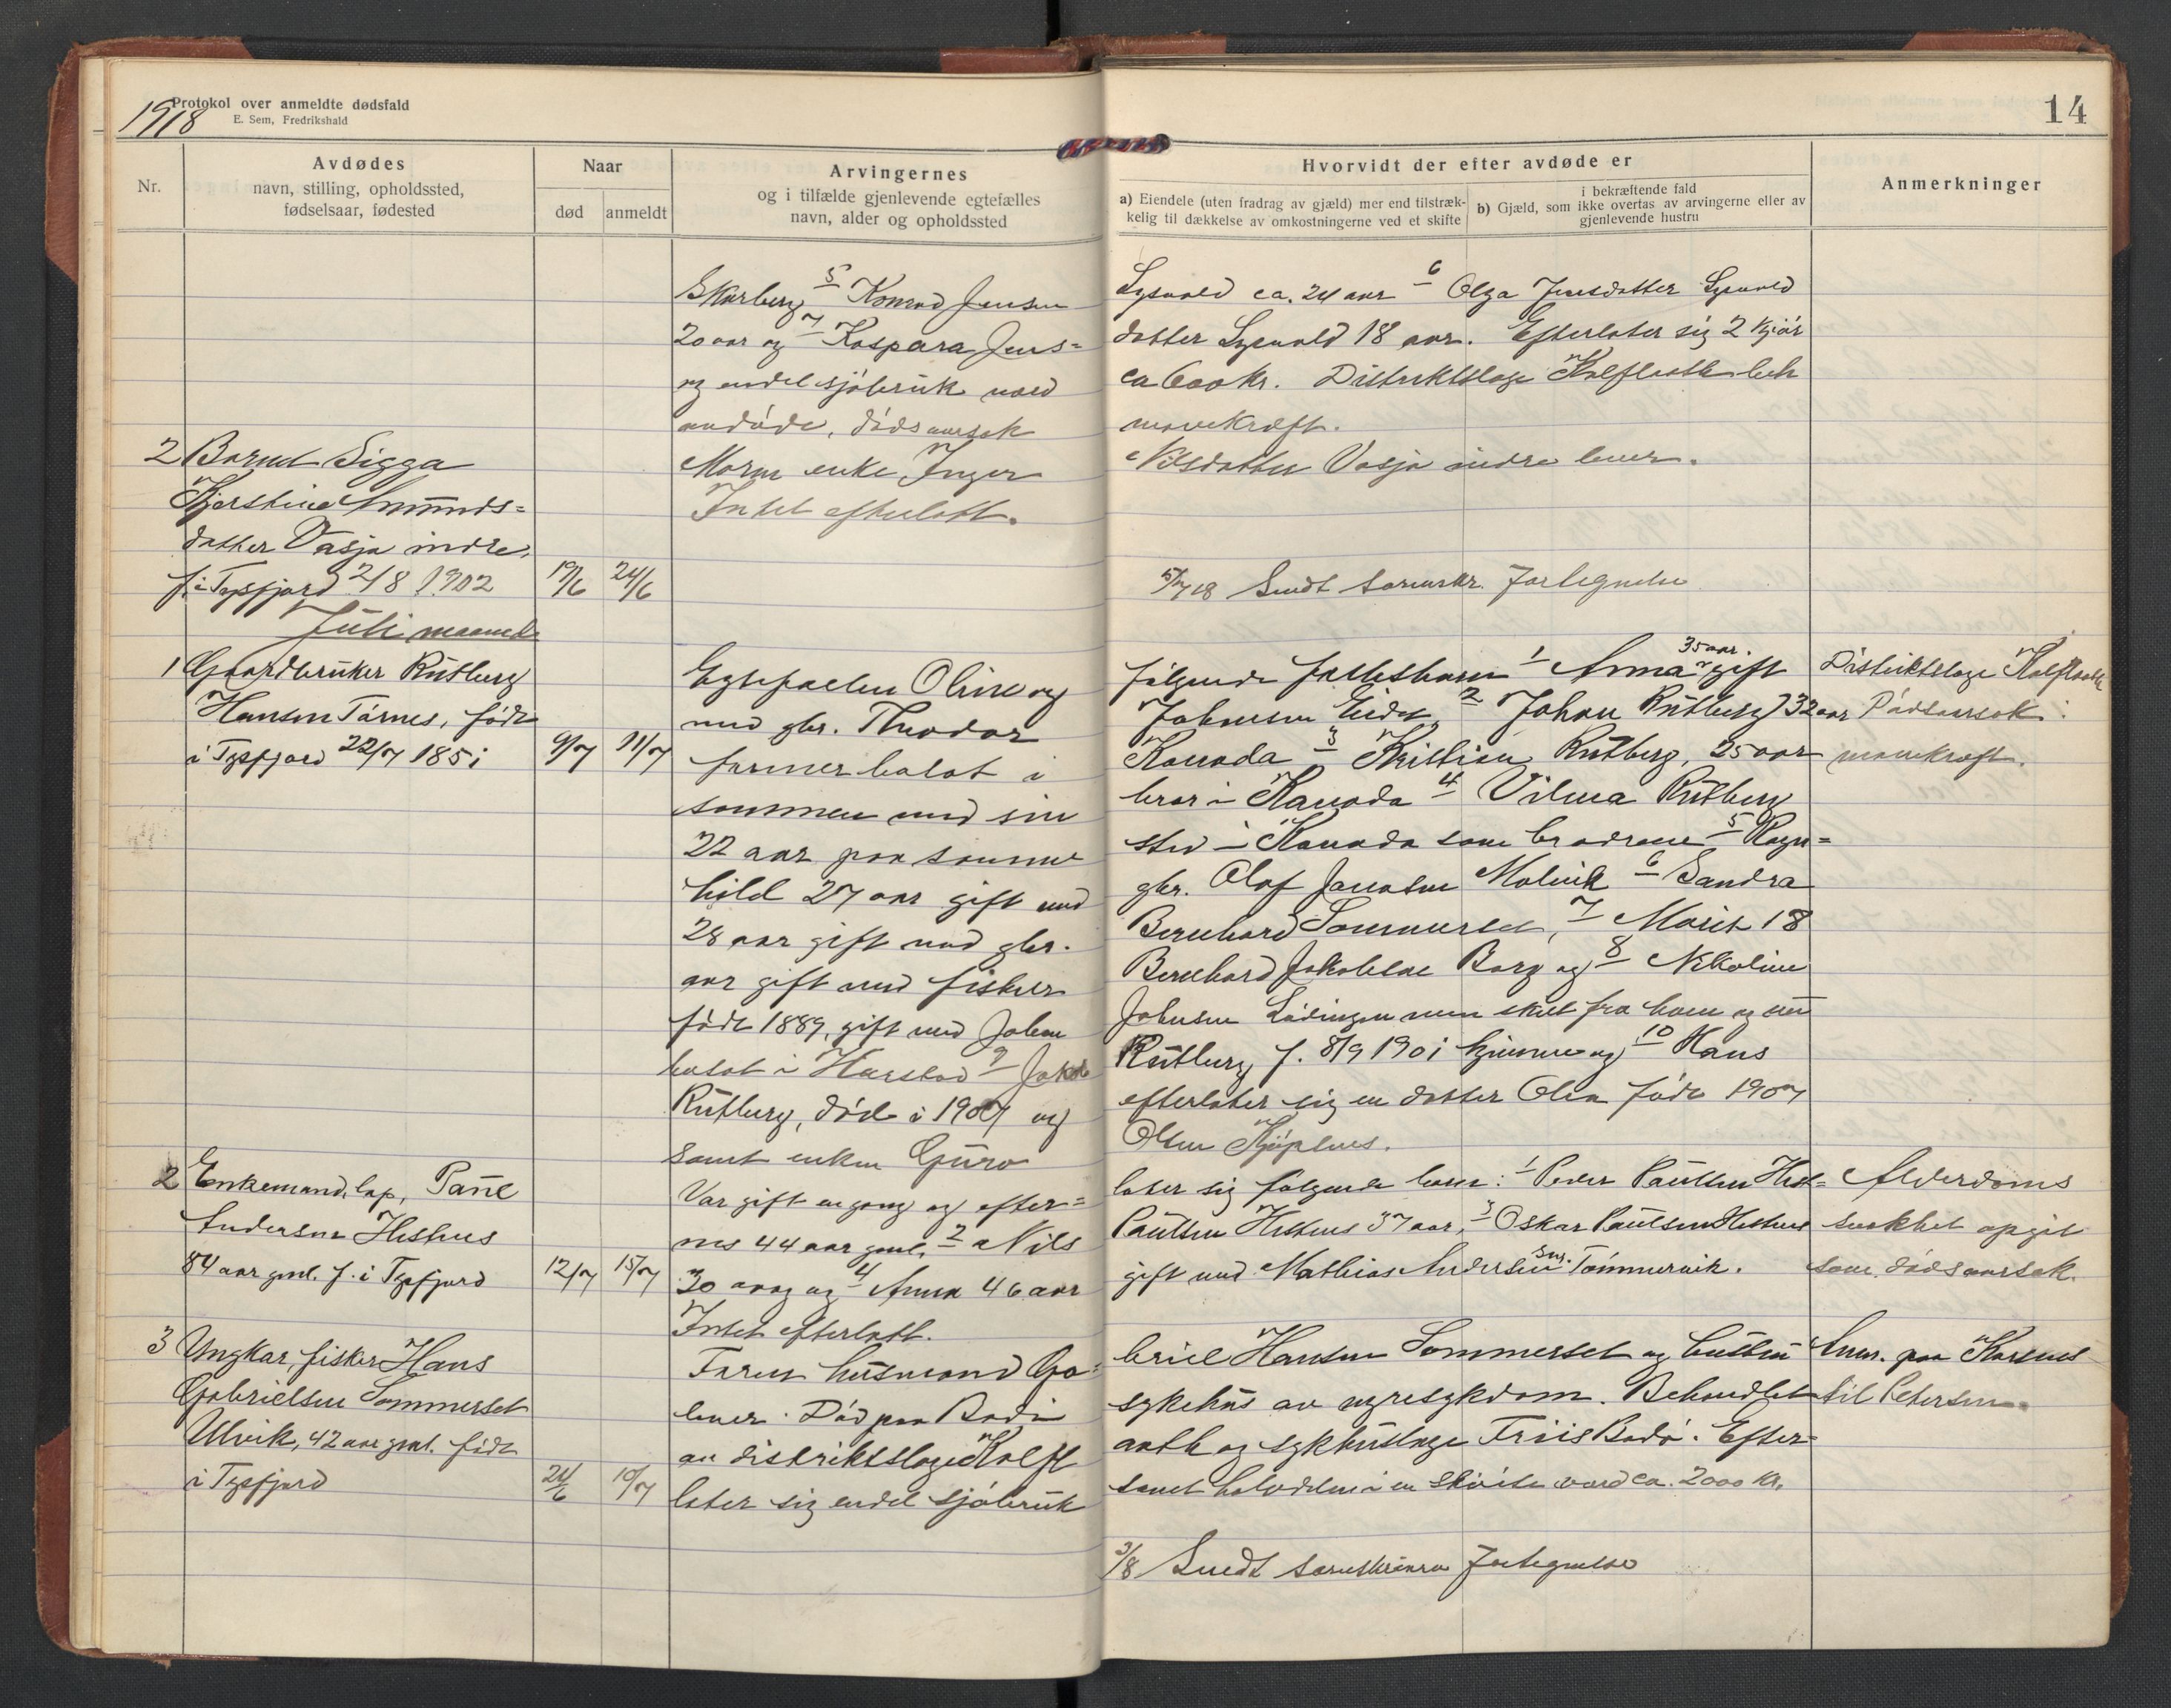 Protokol over anmeldte dødsfald
E. Sem, Fredrikshald
1918
14
Nr.
Avdødes
navn, stilling, opholdssted,
fødselsaar, fødested
Naar
død
anmeldt
Arvingernes
og i tilfælde gjenlevende egtefælles
navn, alder og opholdssted
Hvorvidt der efter avdøde er
a) Eiendele (uten fradrag av gjæld) mer end tilstræk-
kelig til dækkelse av omkostningerne ved et skifte
i bekræftende fald
b) Gjæld, som ikke overtas av arvingerne eller av
gjenlevende hustru
Anmerkninger
Skarberg 5 Konrad Jensen Lysvold ca. 24 aar 6 Olga Jensdatter Lysvold
20 aar og 7 Kaspara Jens= datter Lysvold 18 aar. Efterlater sig 2 kjør
og endel sjøbruk værd ca 600 kr. Distriktslæge Kolflaath beh
avdøde, dødsaarsak marvekræft.
2 Barnet Sigga Moren enke Inger Nilsdatter Vasja indre lever.
Kjerstine Amunds= Intet efterlatt.
datter Vasja indre,
f. i Tysfjord 2/8 1902 19/6 24/6 5/7 18 Sendt sorenskr. fortegnelse
Juli maaned
1 Gaardbruker Rutberg Egtefaellen Oline og følgende fællesbarn 1 Anna 35 aar gift Distriktslæge Kolflaath
Hansen Tårnes, født med gbr. Theodor Johansen Eidet, 2 Johan Rutberg 32 aar Dødsaarsak:
i Tysfjord 22/7 1851 9/7 11/7 farmer bosat i Kanada 3 Kristian Rutberg, 25 aar mavekræft.
sammen med sin bror i Kanada 4 Vilma Rutberg
22 aar paa samme sted i Kanada som brødrene 5 Ragn=
hild 27 aar gift med gbr. Olaf Jacobsen Molvik 6 Sandra
28 aar gift med gbr. Bernhard Sommerset, 7 Marit 18
aar gift med fisker Bernhard Jakobsen Borg og 8 Nikoline
født 1889, gift med Johan Johnsen Lødingen men skilt fra ham og nu
bosat i Harstad 9 Jakob Rutberg f. 8/9 1901 hjemme og 10 Hans
Rutberg, død i 1907 og efterlater sig en datter Olea født 1907
samt enken Guro Olsen Kjøpsnes.
2 Enkemand, lap, Paul Var gift engang og efter= later sig følgende barn: 1 Peder Paulsen Hest= Alderdoms
Andersen Hestnes nes 44 aar gml. 2 Nils Paulsen Hestnes 37 aar, 3 Oskar Paulsen Hestnes svakhet opgit
84 aar gml. f. i Tysfjord 12/7 15/7 30 aar og 4 Anna 46 aar gift med Mathias Andersen Tømmervik. som dødsaarsak.
Intet efterlatt.
3 Ungkar, fisker Hans Faren husmand Ga= briel Hansen Sommerset og hustru Anm. paa
Gabrielsen Sommerset lever. Død paa Bodø sykehus av nyresygdom. Behandlet til Petersen.
Ulvik, 42 aar gml. født av distriktslæge Kolfl aath og sykehuslæge Friis Bodø. Efter=
i Tysfjord 24/6 10/7 later sig endel sjøbruk samt halvdelen i en skøite værd ca. 2000 kr.
3/8 Sendt sorenskriveren fortegnelse